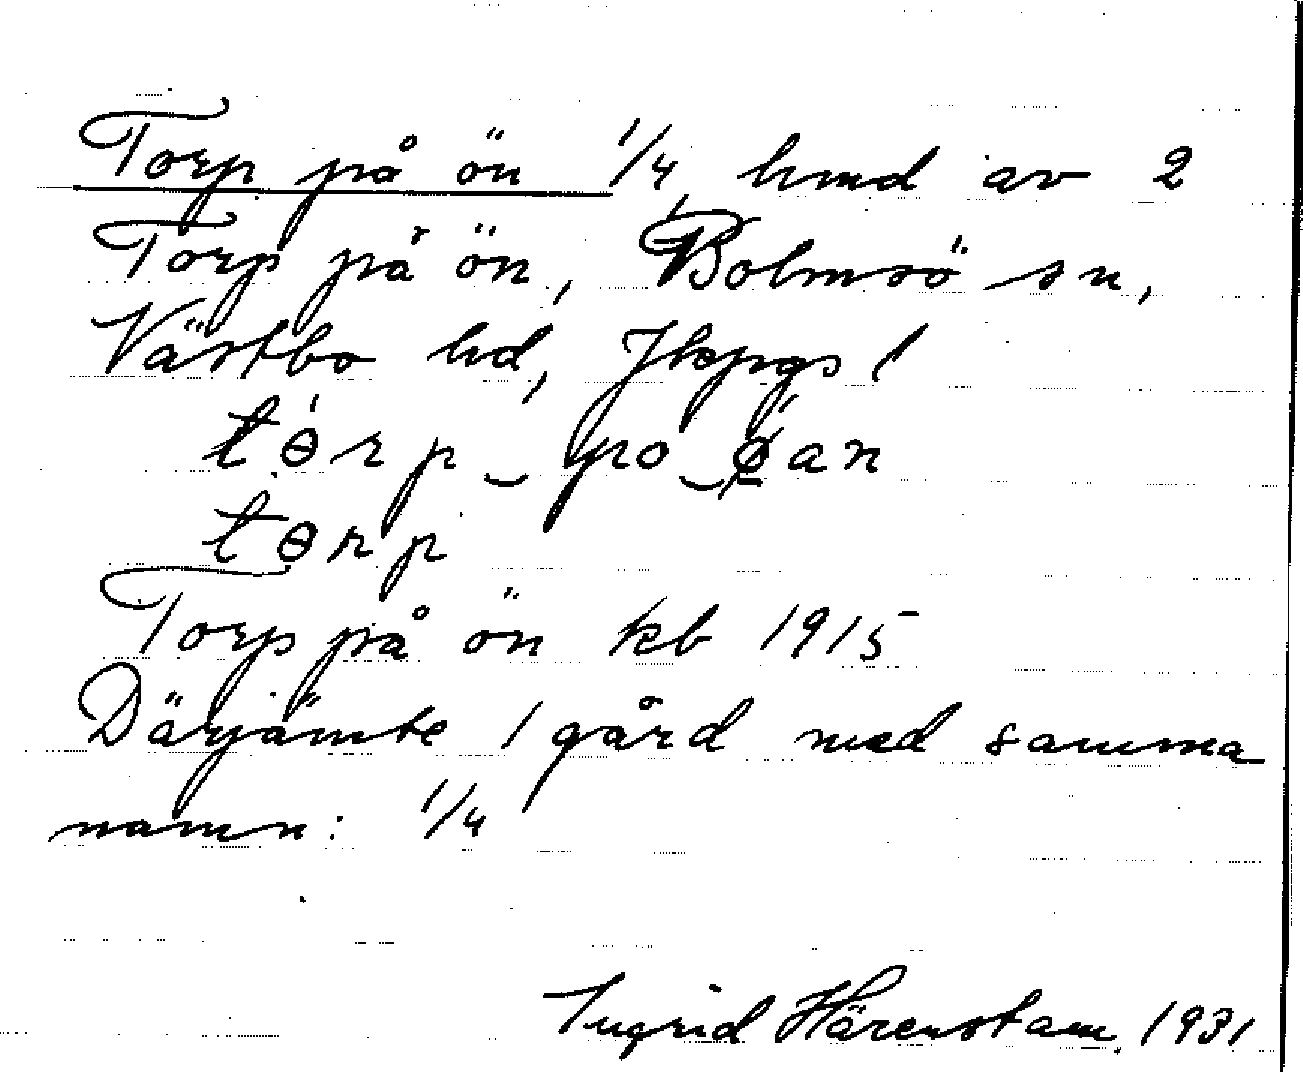 Torp på ön 1/4 hmd av 2
Torp på ön, Bolmsö sn,
Västbo hd, Jkpgs l
tɵ́rp‿po‿ø̀an
tɵrp
Torp på ön kb 1915
Därjämte 1 gård med samma
namn: 1/4
Ingrid Härenstam 1931